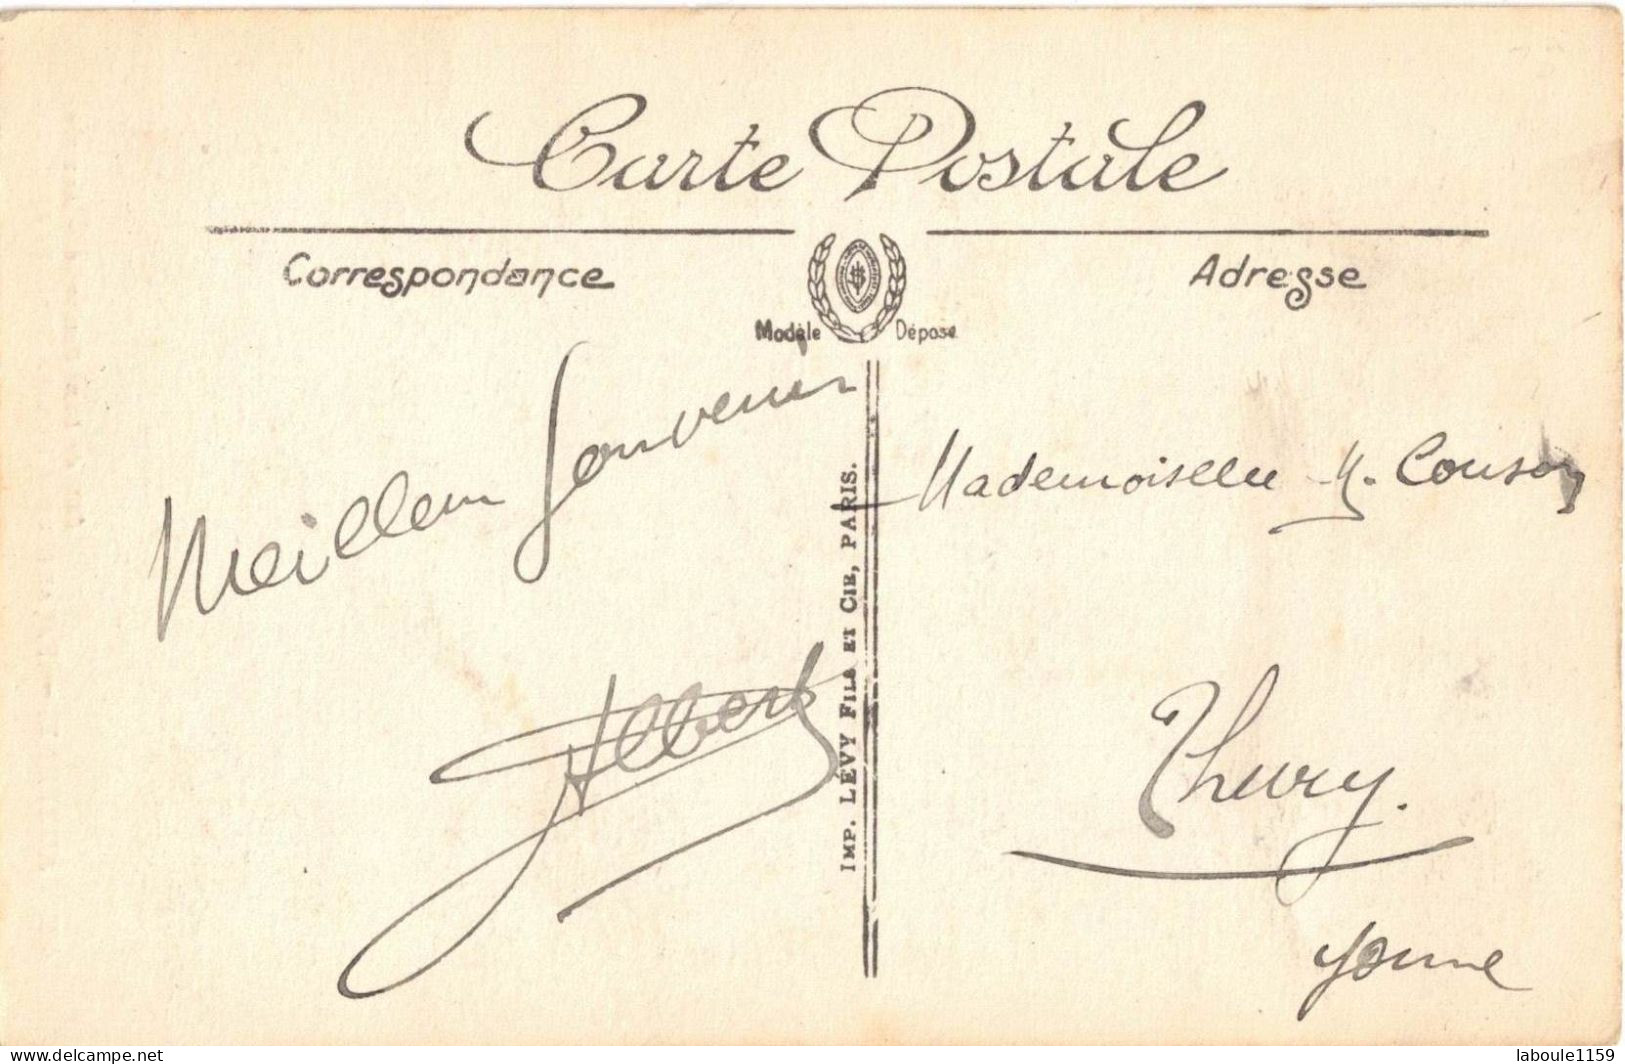 Carte Postale
Correspondance
Adresse
Modèle Déposé
Meilleur Souvenir
Albert
IMP. LÉVY FILS ET CIE, PARIS.
Mademoiselle M. Couson
Thury.
Yonne
laboule1159